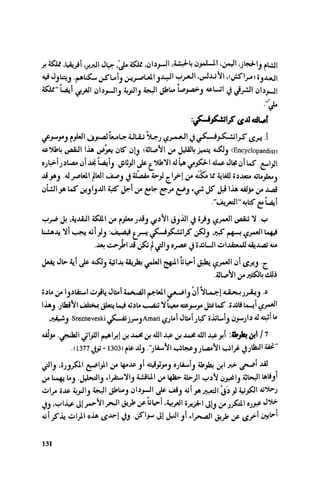 الشام والحجاز، اليمن، المسلمون بالحبشة، السودان، مملكة ملي، جبال البربر، أفريقيا، مملكة بر
العدوة (مراكش)، الأندلس، العرب البدو المعاصرين وأماكن سكناهم. ويتناول فيه
السودان الشرقي في اتساعه وخصوصاً مناطق البجة والنوبة والسودان الغربي أيضاً "مملكة
ملي".
أصالته لدى كراتشكوفسكي:
أ. يرى كراتشكوفسكي في العمري رجلاً نقالة جامعاً لصنوف العلوم وموسوعي
(Encyclopaedist) ولكنه يتميز بالقليل من الأصالة؛ وإن كان يعوّض هذا النقص باطلاعه
الواسع. كما أن مجال عمله الحكومي هيأ له الاطلاع على الوثائق. وأيضاً نجد أن مصادر أخباره
ومعلوماته متعددة للغاية مما مكّنه من إخراج لوحة مفصلة في وصف العالم المعاصر له. وهو قد
قصد من مؤلفه هذا قبل كل شيء وضع مرجع جامع من أجل كتبة الدواوين كما هو الشأن
أيضاً مع كتابه "التعريف".
ب. لا تنقص العمري وفرة في الذوق الأدبي وقدر معلوم من الملكة النقدية، بل ضرب
فيهما العمري بسهم كبير. ولكن كراتشكوفسكي يسرع فيضيف: ولو أنه يجب ألا يدهشنا
منه تصديقه للمعتقدات السائدة في عصره والتي لم تكن قد اطّرحت بعد.
ج. ويرى أن العمري يطبق أحياناً المنهج العلمي بطريقة بدائية ولكنه على أية حال يفعل
ذلك بالكثير من الأصالة.
د. ويقرر بحقه إجمالاً أنّ واضعي المعاجم الضخمة أمثال ياقوت استفادوا من مادة
العمري أيما فائدة. كما تمثل موسوعته معيناً لا تنضب مادته فيما يتعلق بمختلف الأقطار. وهذا
ما أثبته له دارسون وأساتذة كبار أمثال أماري Amari وسرزنفسكي Srezneveski وشيفير.
7 / ابن بطوطة: أبو عبد الله محمد بن عبد الله بن محمد بن إبراهيم اللواتي الطنجي. مؤلّفه
"تحفة النظار في غرائب الأمصار وعجائب الأسفار". ولد عام (1303 - توفي 1377).
لقد أضحى خبر ابن بطوطة وأسفاره وموثوقيته أو عدمها من المواضيع المكرورة، والتي
أوفاها البحاثة والمحبون لأدب الرحلة حظها من المناقشة والاستقراء والتحليل. وما يهمنا من
رحلاته الكونية لو دَقّ التعبير هو أنه وقف على السودان ومناطق البجة والنوبة عدة مرات
خلال عبوره المتكرر من وإلى الجزيرة العربية، أحياناً عن طريق البحر الأحمر إلى عيذاب، وفي
أحايين أخرى عن طريق الصحراء أو النيل إلى سواكن. وفي إحدى هذه المرات يذكر أنه
131